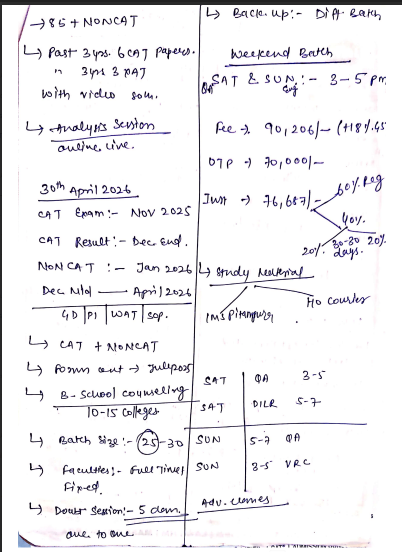 → 85 + NONCAT
↳ Past 3 yrs. 6 CAT Papers.
" 3 yrs 3 XAT
with video soln.
↳ Analysis Session
online live.
30th April 2026
CAT Exam:- NOV 2025
CAT Result:- Dec End.
NON CAT :- Jan 2026
Dec Mid — April 2026
GD | PI | WAT | SOP.
↳ CAT + NONCAT
↳ Form out → July 2025
↳ B-School counseling
10-15 Colleges
↳ Batch Size:- 25-30
↳ Faculties:- Full Time,
Fixed.
↳ Doubt Session:- 5 dam.
one to one
↳ Back up:- Diff. Batch
Weekend Batch
SAT & SUN:- 3-5 pm
Fee → 90,206/- (+18%
OTP → 70,000/-
Inst → 76,687/-
60% Reg
40%
20% 30-30 20%
days.
↳ Study Material
IMS Pitampura
HO Courier
SAT | QA 3-5
SAT | DILR 5-7
SUN | 5-7 QA
SUN | 3-5 VRC
Adv. Classes